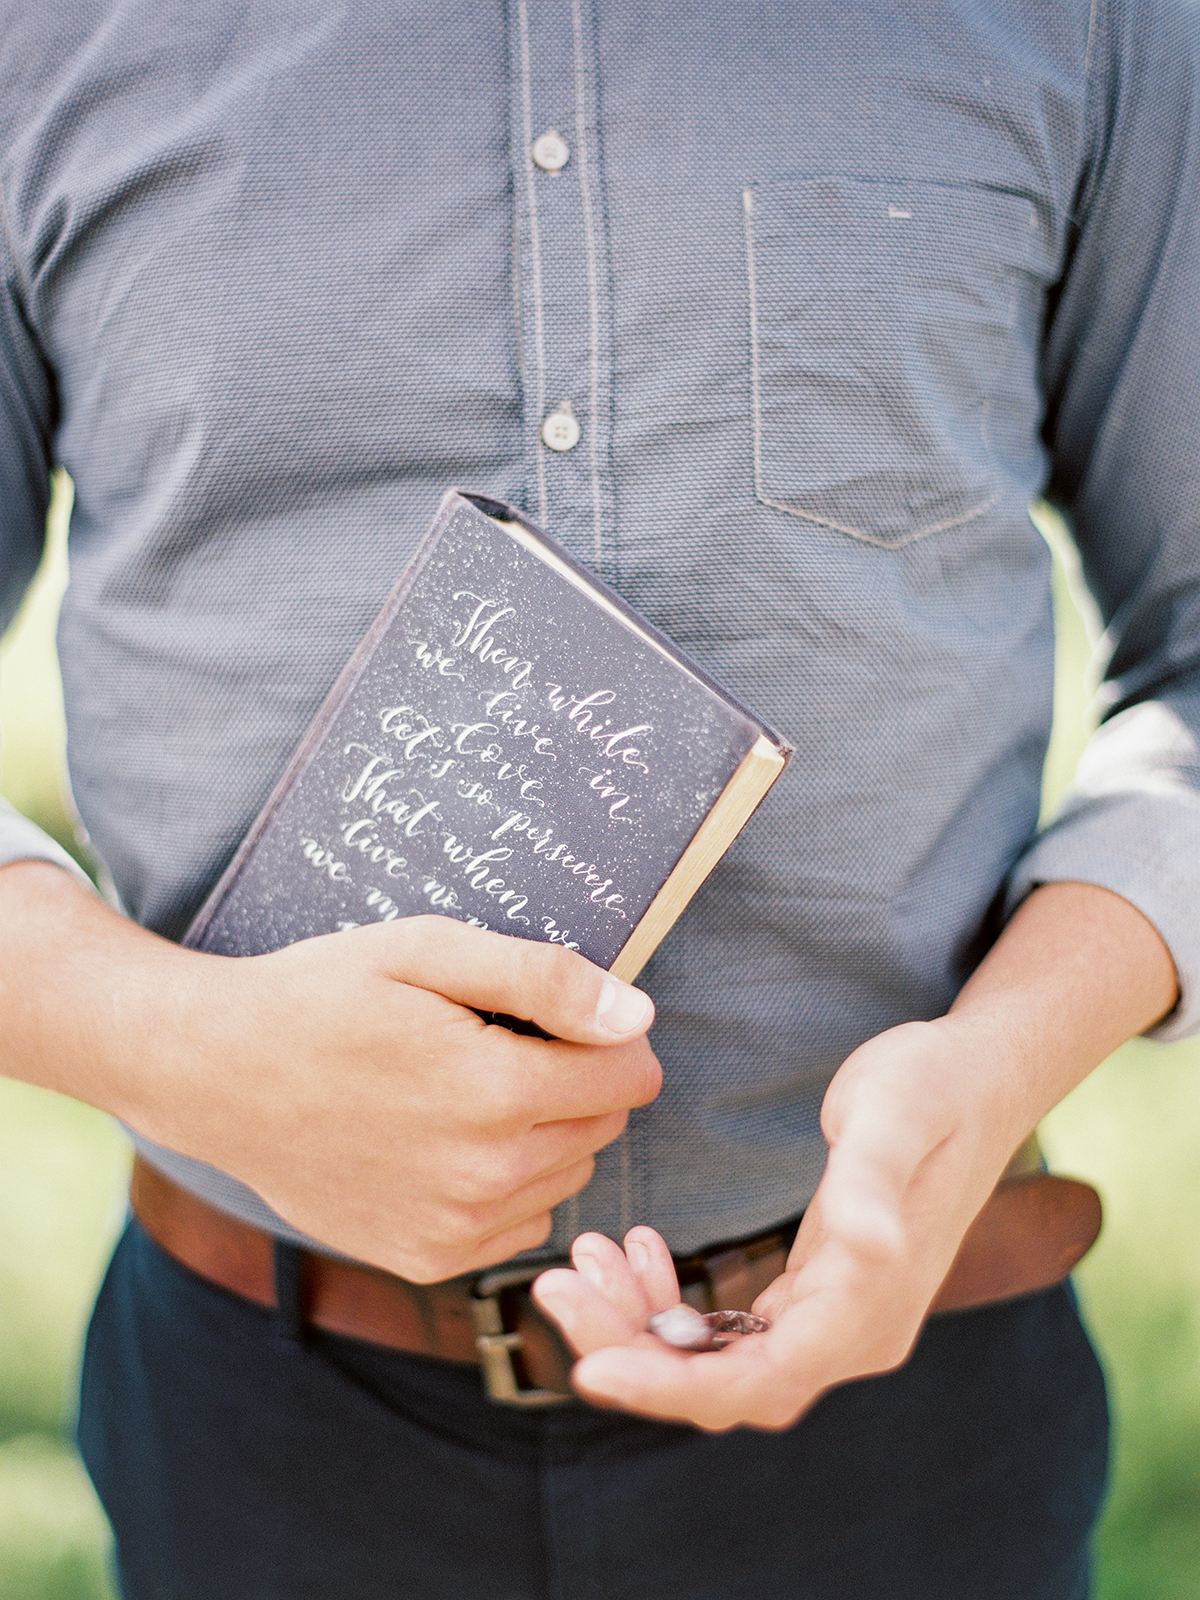 Then while
we live in
Love
let's so persevere
That when we
live no
we